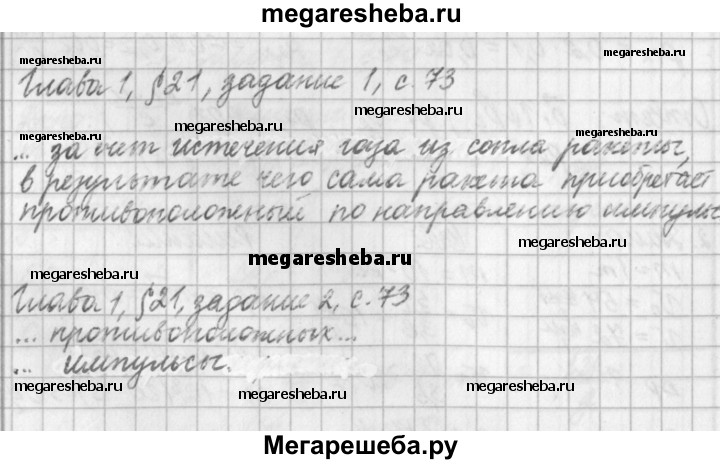 megaresheba.ru
Глава 1, §21, задание 1, с. 73
megaresheba.ru
megaresheba.ru
megaresheba.ru
... за счет истечения газа из сопла ракеты,
в результате чего сама ракета приобретает
противоположный по направлению импульс
megaresheba.ru
megaresheba.ru
megaresheba.ru
megaresheba.ru
Глава 1, §21, задание 2, с. 73
... противоположных...
megaresheba.ru
... импульсы.
megaresheba.ru
megaresheba.ru
megaresheba.ru
Мегарешеба.ру